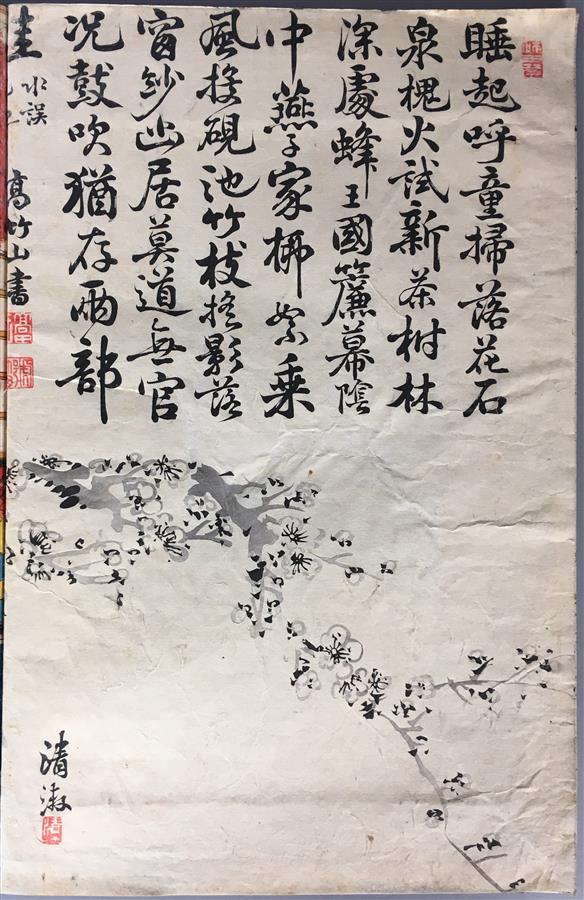 睡起呼童掃落花石
泉槐火試新茶樹林
深處蜂王國簾幕陰
中燕子家柳絮乘
風投硯池竹枝搖影落
窗紗幽居莫道無官
况鼓吹猶存兩部
蛙
水誤
高竹山書
清漱